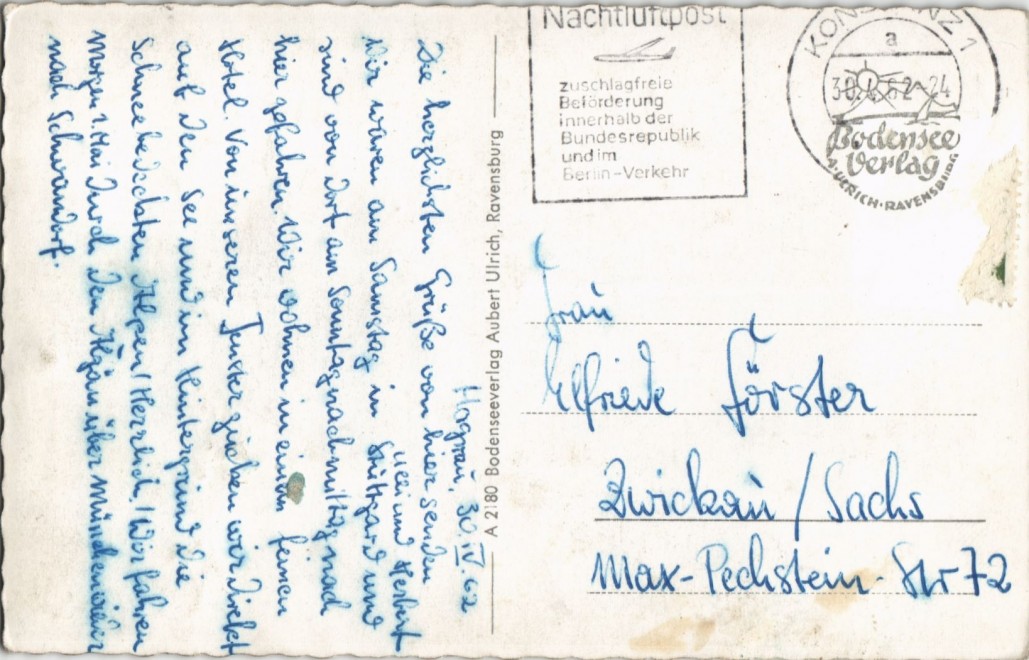 Nachtluftpost
zuschlagfreie
Beförderung
innerhalb der
Bundesrepublik
und im
Berlin-Verkehr
KONSTANZ 1
a
30.4.62-24
Bodensee
Verlag
A. ULRICH · RAVENSBURG
A 2180 Bodenseeverlag Aubert Ulrich, Ravensburg
30. IV 62
Die herzlichsten Grüße von hier senden
Ulli und Herbert
Wir waren am Samstag in Stuttgard und
sind von dort am Sonntagnachmittag nach
hier gefahren. Wir wohnen in einem feinen
Hotel. Von unseren Fenster gucken wir direkt
auf den See und im Hintergrund die
Schneebedeckten Alpen! Herrlich! Wir fahren
Morgen 1. Mai durch den Algäu über München
nach Schwandorf.
Frau
Elfriede Förster
Zwickau / Sachs
Max-Pechstein-Str 72